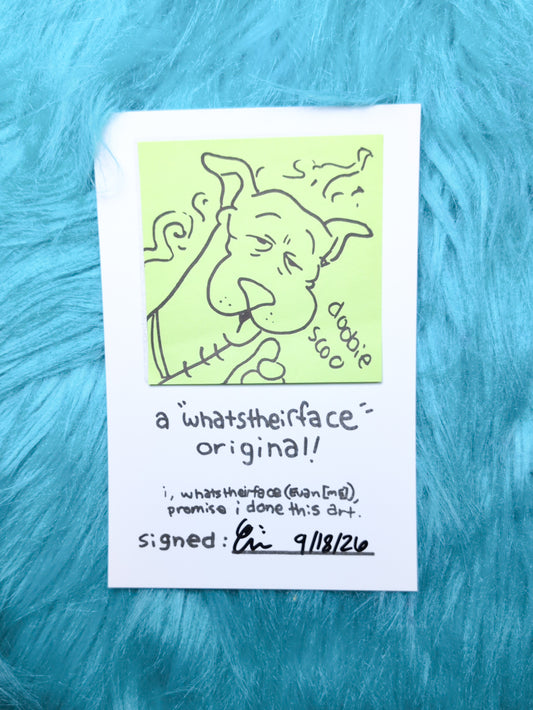 doobie
scoo
a "whatstheirface"
original!
i, whatstheirface (Evan [me]),
promise i done this art.
signed: 9/18/26